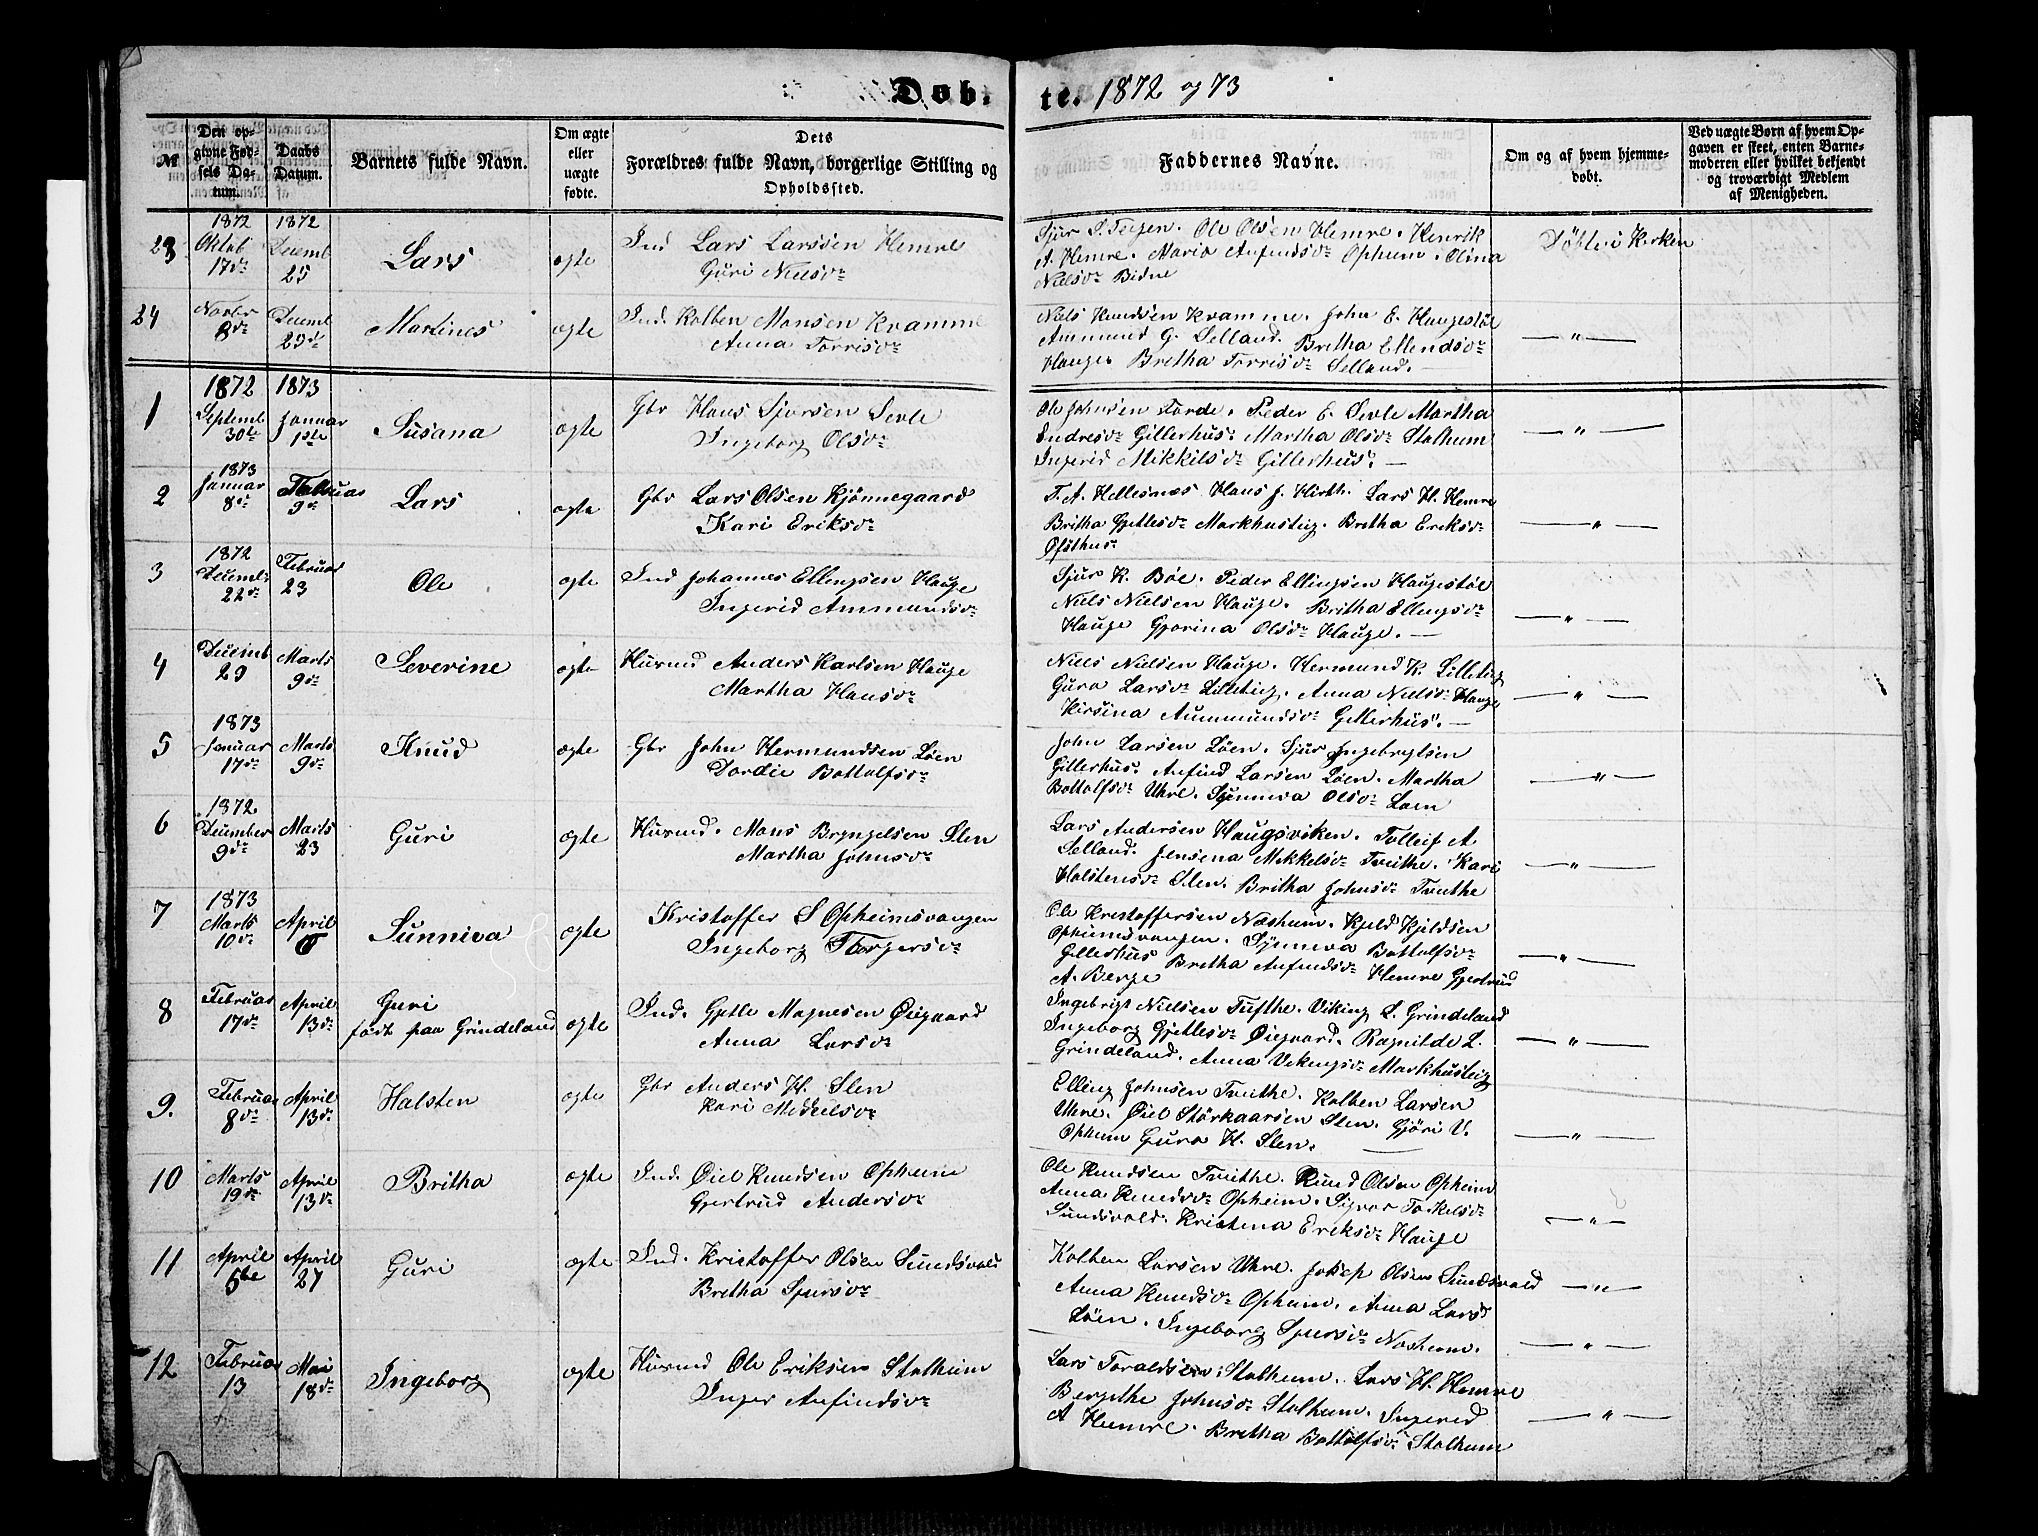 Døb- te. 1872 og 73
№
Den op-
givne Fød-
sels Da-
tum.
Daabs
Datum.
Barnets fulde Navn.
Om ægte
eller
uægte
fødte.
Dets
Forældres fulde Navn, borgerlige Stilling og
Opholdssted.
Faddernes Navne.
Om og af hvem hjemme-
døbt.
Ved uægte Børn af hvem Op-
gaven er skeet, enten Barne-
moderen eller hvilket bekjendt
og troværdigt Medlem
af Menigheden.
23
1872
Oktob
17de
1872
Decemb
25
Lars
ægte
Ind Lars Larssen Hemre
Guri Nielsdr
Sjur S. Teigen. Ole Olsen Hemre. Henrik
A. Hemre. Maria Anfindsdr Opheim. Olina
Nielsdr Bidne
Døbte i Kirken
24
Novbr
8de
Decemb
29de
Martines
ægte
Ind. Kolben Monsen Kvamme
Anna Torrisdr
Niels Knudsen Kvamme. John E. Haugestøl
Ammund G. Selland. Britha Ellendsdr
Hauge. Bretha Torrisdr Selland. —
— " —
1
1872
Septemb
30te
1873
Januar
1ste
Susana
ægte
Gbr Hans Sjursen Sevle
Ingeborg Olsdr
Ole Johnsen Førde. Peder E. Sevle Martha
Endresdr Gillerhus. Martha Olsdr Stalheim
Ingerid Mikkilsdr Gillerhus. —
— " —
2
1873
Januar
8de
Februar
9de
Lars
ægte
Gbr Lars Olsen Kjønnegaard
Kari Eriksdr
T. A. Hellesnæs Hans J. Hirth. Lars H. Hemre
Britha Gjetlesdr Markhusteig. Bretha Ereksdr
Øfsthus.
— " —
3
1872
Decemb
22de
Februar
23
Ole
ægte
Ind Johannes Ellingsen Hauge
Ingerid Ammundsdr
Sjur K. Bøe. Peder Ellingsen Haugestøl
Niels Nielsen Hauge. Britha Ellengsdr
Hauge Gjorina Olsdr Hauge. —
— " —
4
Decemb
29
Marts
9de
Severine
ægte
Husmd Anders Karlsen Hauge
Martha Hansdr
Niels Nielsen Hauge. Hermund K. Lilleteig
Guro Larsdr Lilleteig. Anna Nielsdr Hauge
Kirsina Aummundsdr Gillerhus. —
— " —
5
1873
Januar
17de
Marts
9de
Knud
ægte
Gbr John Hermundsen Løen
Dordie Bottolfsdr
John Larsen Løen. Sjur Ingebregtsen
Gillerhus. Anfind Larsen Løen. Martha
Bottolfsdr Uhre. Synneva Olsdr Løen
— " —
6
1872
December
9de
Marts
23
Guri
ægte
Husmd. Mons Bryngelsen Slen
Martha Johnsdr
Lars Andersen Haugsviken. Tolleif A
Selland. Jensena Mekkelsdr Tveithe. Kari
Halstensdr Slen. Britha Johnsdr Tveithe
— " —
7
1873
Marts
10de
April
6
Sunniva
ægte
Kristoffer S Opheimsvangen
Ingeborg Thorgersdr
Ole Kristoffersen Næsheim. Kjeld Kjeldsen
Opheimsvangen. Synneva Bottolfsdr
Gillerhus Bretha Anfindsdr Hemre Gjertrud
A. Berge
— " —
8
Februar
17de
April
13de
Guri
født paa Grindeland
ægte
Ind. Gjetle Magnesen Øigaard
Anna Larsdr
Ingebrigt Nielsen Tufthe. Viking L. Grindeland
Ingeborg Gjetlesdr Øiegaard. Ragnilde L.
Grindeland. Anna Vekingsdr Markhusteig
— " —
9.
Februar
8de
April
13de
Halsten
ægte
Gbr Anders H. Slen
Kari Mekkelsdr
Elling Johnsen Tveithe. Kolben Larsen
Uhre. Øiel Størkaarsen Slen. Gjøri V.
Opheim Guro H. Slen. —
— " —
10
Marts
19de
April
13de
Britha
ægte
Ind. Øiel Knudsen Opheim
Gjertrud Andersdr
Ole Knudsen Tveithe. Knud Olsen Opheim
Anna Knudsdr Opheim. Signor Torkelsdr
Sundsvold. Kristina Ereksdr Hauge
— " —
11
April
5te
April
27
Guri
ægte
Ind. Kristoffer Olsen Sundsvold
Bretha Sjursdr
Kolben Larsen Uhre. Josep Olsen Sundsvold
Anna Knudsdr Opheim. Anna Larsd
Løen. Ingeborg Sjursdr Næsheim.
— " —
— " —
12
Februar
13
Mai
18de
Ingeborg
ægte
Husmd Ole Eriksen Stalheim
Inger Anfindsdr
Lars Toraldsen Stalheim. Lars H. Hemre
Bergithe Johnsdr Stalheim. Ingerid
A Hemre. Bretha Bottolfsdr Stalheim
— " —